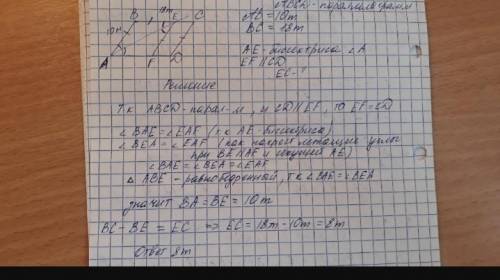 B 18m E C
10м
A F D
ABCD - параллелограмм
AB = 10m
BC = 18m
AE - биссектриса ∠A
EF || CD
EC - ?
Решение
Т.к ABCD - парал-м, и CD || EF, то EF = CD
∠BAE = ∠EAF (т.к AE - биссектриса)
∠BEA = ∠EAF (как накрест лежащие углы
при BE || AF и секущей AE)
∠BAE = ∠BEA = ∠EAF
△ ABE - равнобедренный, т.к ∠BAE = ∠BEA
значит BA = BE = 10m
BC - BE = EC => EC = 18m - 10m = 8m
Ответ 8m